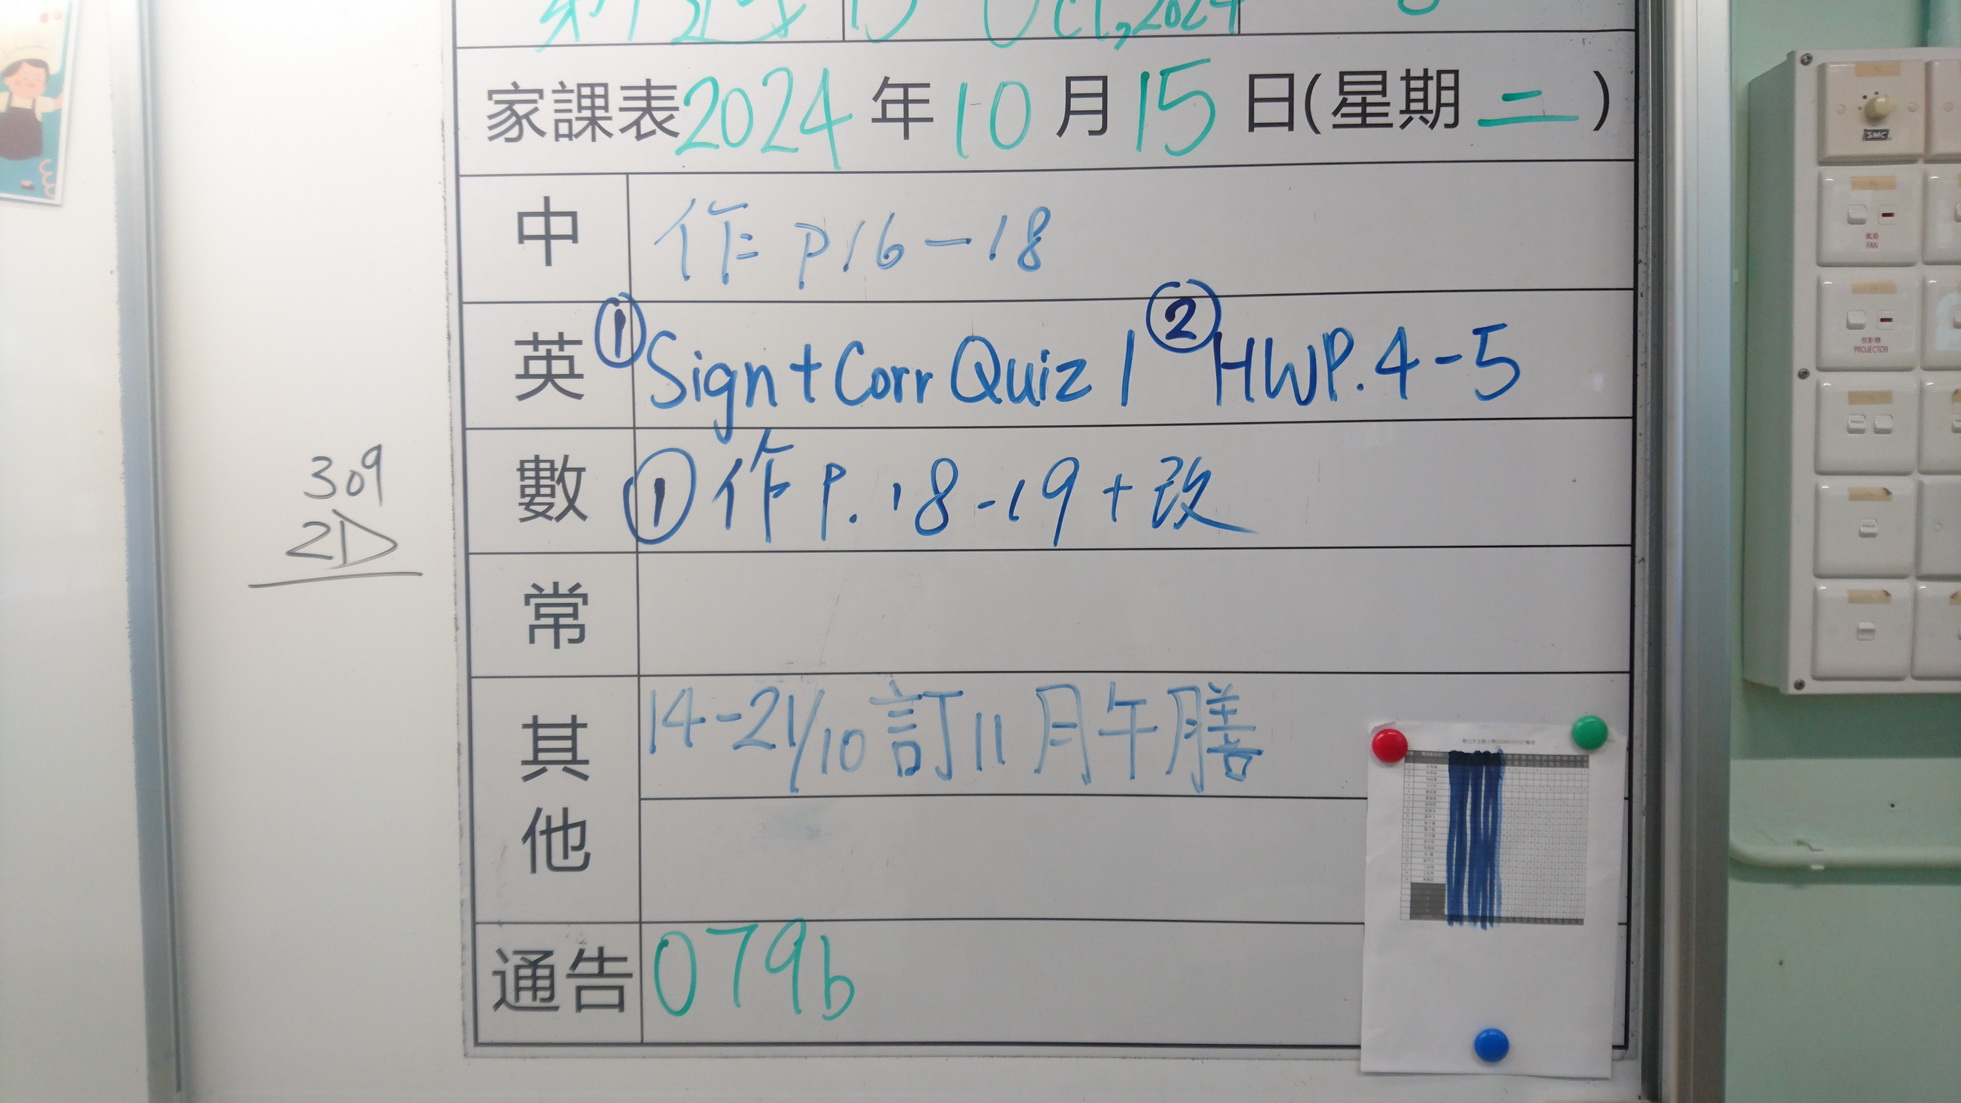 Oct, 2024
家課表 2024 年 10 月 15 日(星期 二 )
中 作 P16-18
英 ① Sign + Corr Quiz 1 ② HW P.4-5
數 ① 作 P.18-19 + 改
常
其他 14-21/10 訂 11 月午膳
通告 079b
309
2D
SMC
FAN
PROJECTOR